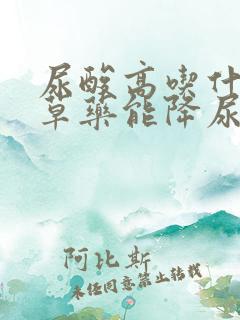 尿酸高喫什
草藥能降尿
阿比斯
未经同意禁止转载